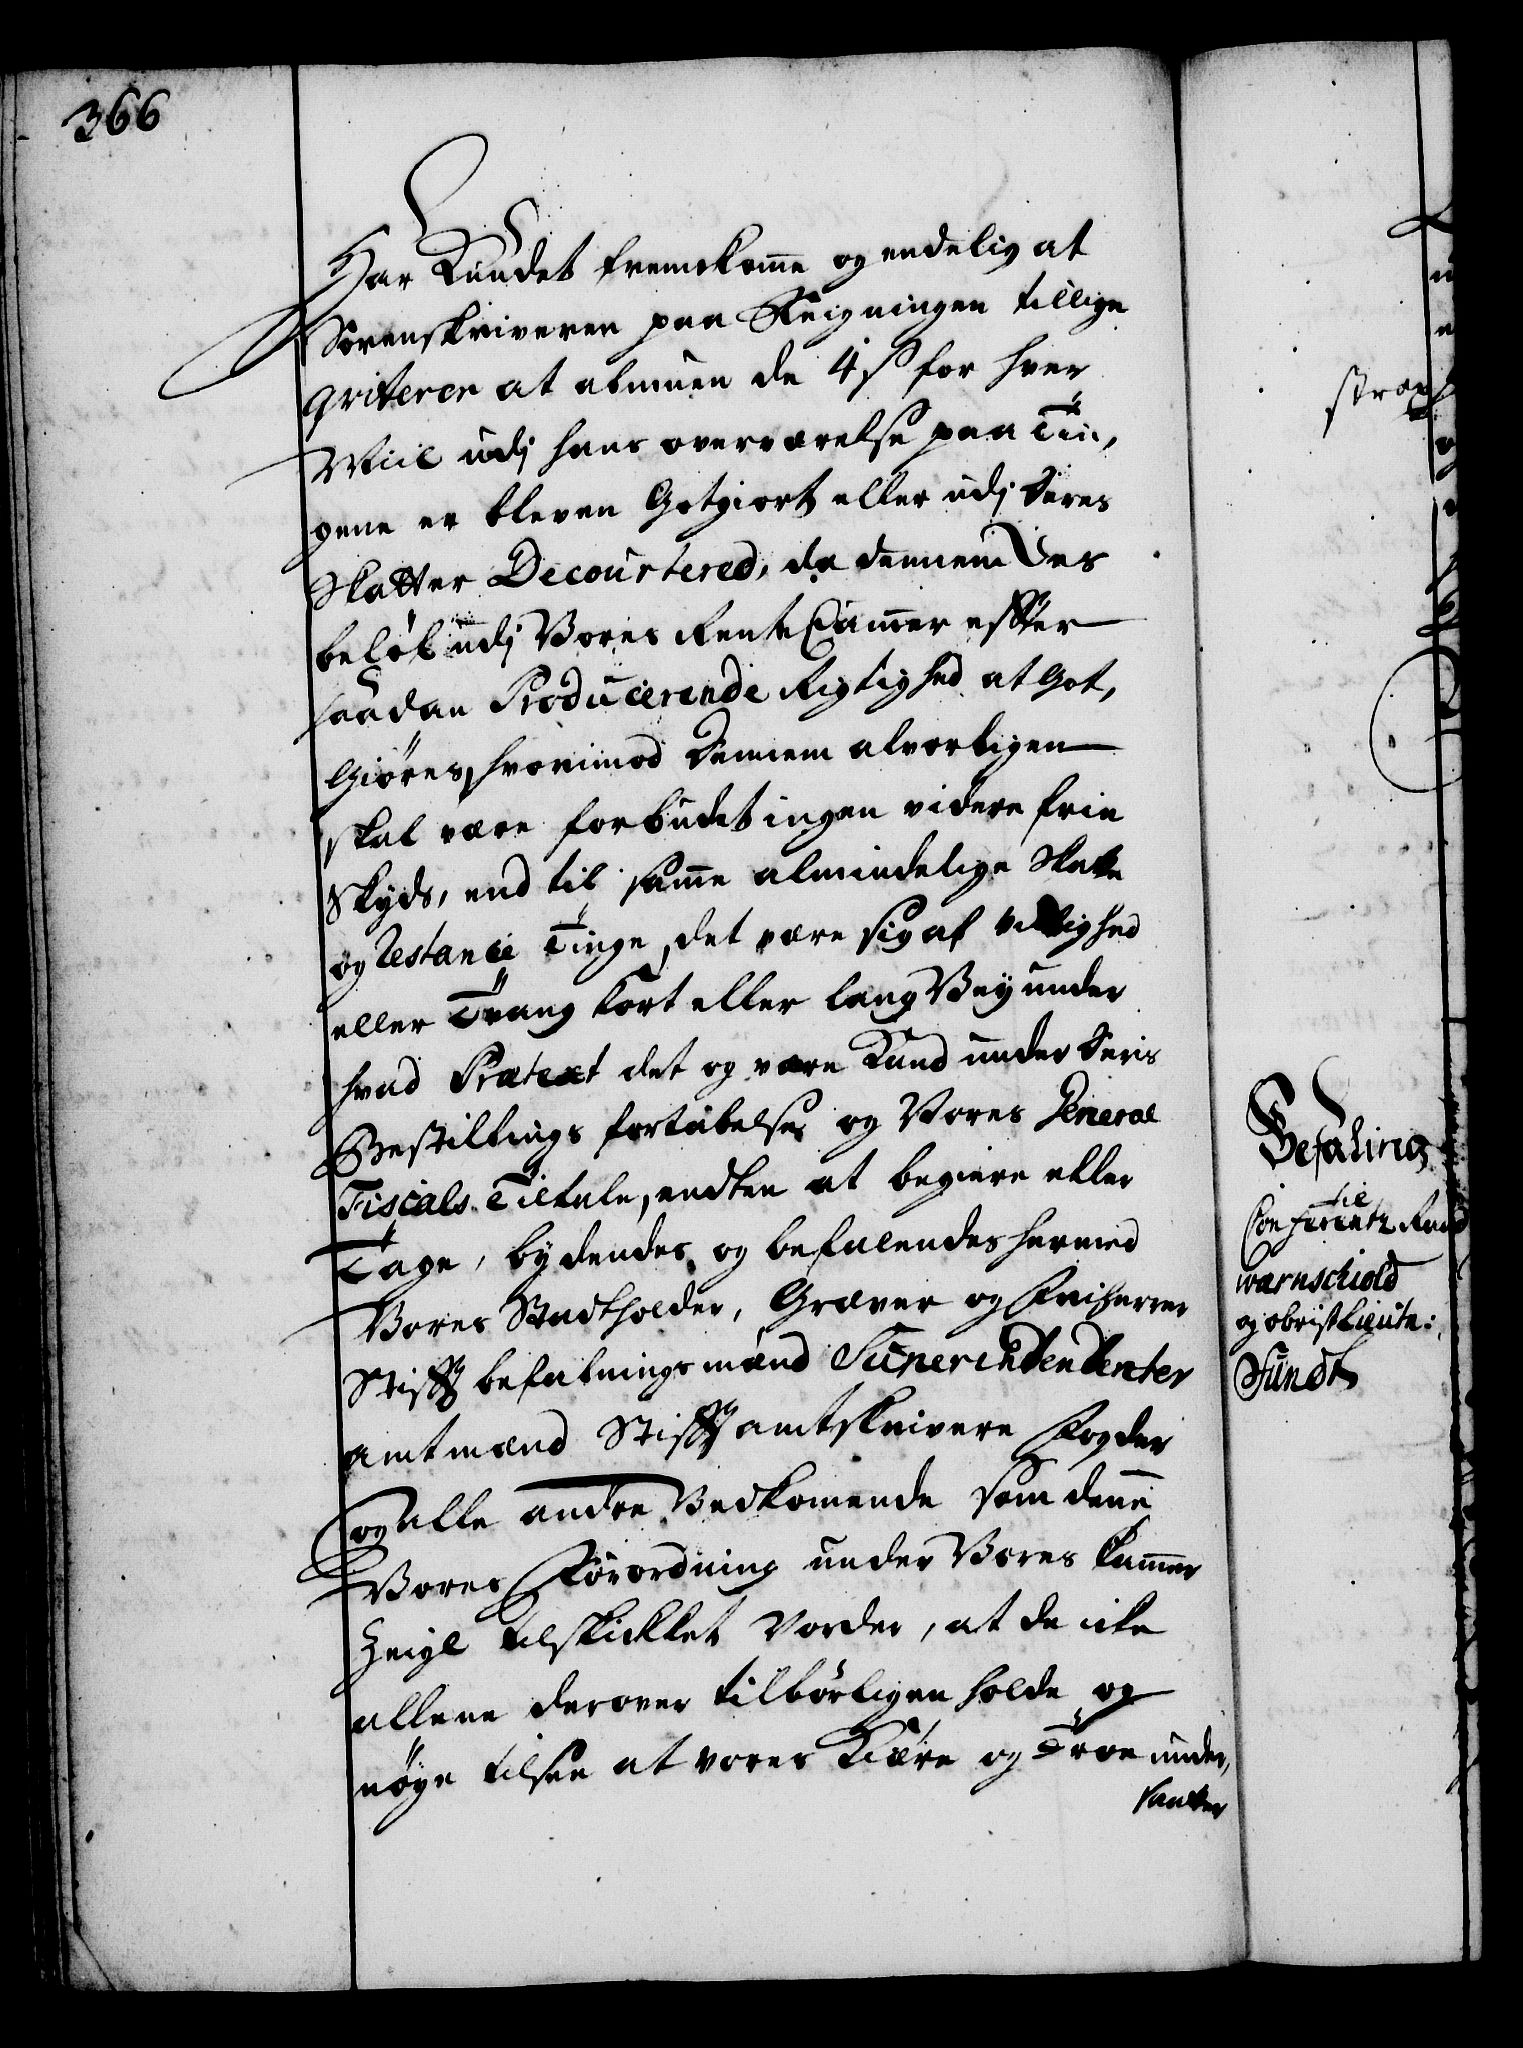 366
Har Kundet fremkome og endelig at
Sorenskriveren paa Reigningen tillige
qviterer at almuen de 4 s for hver
Miil udj hans overværelse paa Tin,
gene er bleven Gotgiort eller udj deres
Skatter Decourtered, da dennem des
beløb udj Vores Rente Camer effter
saadan Producerende Rigtighed at Got,
Giøres, hvorimod dennem alvorligen
skal være forbudet ingen videre frie
Skyds, end til same almindelige Skatte
og Restance Tinge, det være sig af Villighed
eller Tvang kort eller lang Vey under
hvad Prætext det og være Kand under deris
Bestillings fortabelse og Vores General
Fiscals Tiltale, endten at begiere eller
Tage, bydendes og befalendes hermed
Vores Stadtholder, Græver og Friherrer
Stifft befalningsmænd Superintendenter
amtmænd Stiffts amtskrivere Fogder
og alle andre Vedkomende som denne
Vores Forordning under Vores Cammer
Zeigl tilskicket Vorder, at de icke
allene derover tilbørligen holde og
nøye tilsee at vores Kiære og Troe under,
saatter
strax
Befaling
til
Conferentz Raad
Warnschiold
og obrist Lieute:
Sundt